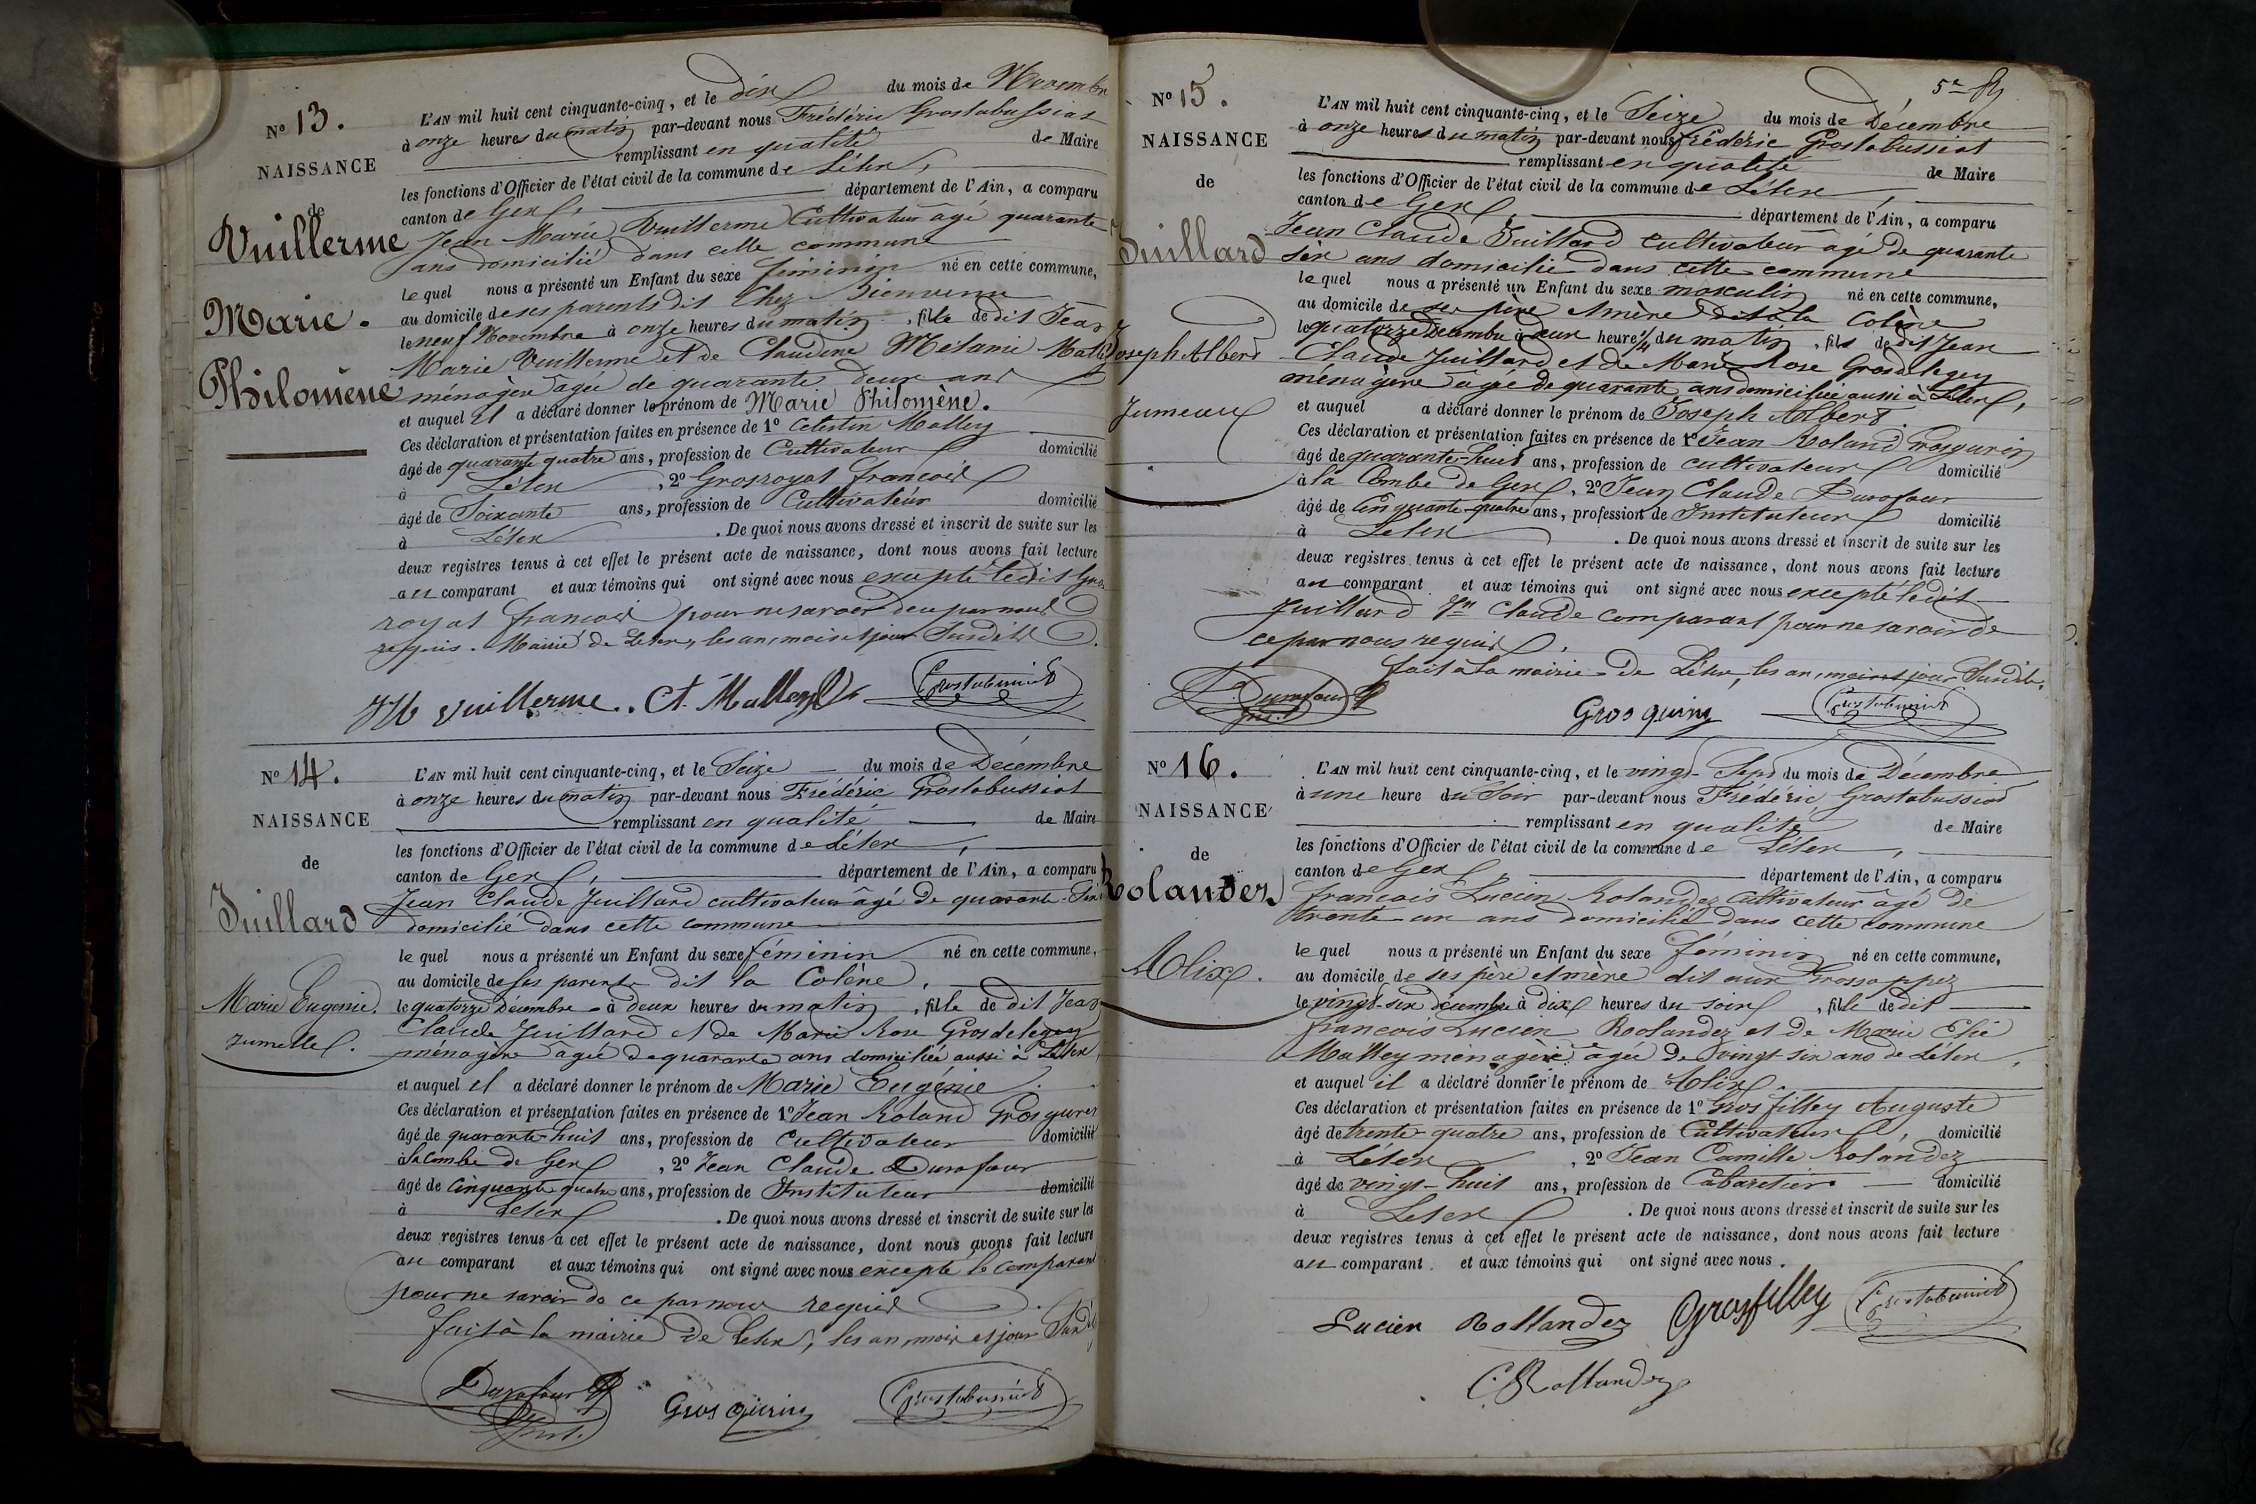 N° 13.
NAISSANCE
de
Vuillerme
Marie.
Philomène
L'AN mil huit cent cinquante-cinq, et le dix du mois de Novembre
à onze heures du matin par-devant nous Frédéric Grostabussiat
remplissant en qualité de Maire
les fonctions d'Officier de l'état civil de la commune de Lélex,
canton de Gex, département de l'Ain, a comparu
Jean Marie Vuillerme Cultivateur âgé quarante
ans domicilié dans cette commune
le quel nous a présenté un Enfant du sexe féminin né en cette commune,
au domicile de ses parents dit Chez Bienvenu
le neuf Novembre à onze heures du matin, fille de dit Jean
Marie Vuillerme et de Claudine Mélanie Matt
ménagère agée de quarante deux ans
et auquel il a déclaré donner le prénom de Marie Philomène.
Ces déclaration et présentation faites en présence de 1° Celestin Mattey
âgé de quarante quatre ans, profession de Cultivateur domicilié
à Lélex, 2° Grosroyat francois
âgé de Soixante ans, profession de Cultivateur domicilié
à Lélex. De quoi nous avons dressé et inscrit de suite sur les
deux registres tenus à cet effet le présent acte de naissance, dont nous avons fait lecture
au comparant et aux témoins qui ont signé avec nous excepté ledit Gros
royat francois pour ne savoir de ce par nous
requis. Mairie de Lelex, les an, mois et jour Susdits.
JM vuillerme. Ct. Mattey Grostabussiat
N° 14.
NAISSANCE
de
Juillard
Marie Eugenie.
Jumelle.
L'AN mil huit cent cinquante-cinq, et le Seize du mois de Décembre
à onze heures du matin par-devant nous Frédéric Grostabussiat
remplissant en qualité de Maire
les fonctions d'Officier de l'état civil de la commune de Lélex,
canton de Gex, département de l'Ain, a comparu
Jean Claude Juillard cultivateur âgé de quarante Six
domicilié dans cette commune
le quel nous a présenté un Enfant du sexe féminin né en cette commune,
au domicile de ses parents dit la Colène,
le quatorze Décembre à deux heures du matin, fille de dit Jean
Claude Juillard et de Marie Rose Grosdelegey
ménagère âgée de quarante ans domiciliée aussi à Lelex,
et auquel il a déclaré donner le prénom de Marie Eugénie.
Ces déclaration et présentation faites en présence de 1° Jean Roland Grosgurin
âgé de quarante-huit ans, profession de Cultivateur domicilié
à la Combe de Gex, 2° Jean Claude Durafour
âgé de Cinquante quatre ans, profession de Instituteur domicilié
à Lelex. De quoi nous avons dressé et inscrit de suite sur les
deux registres tenus à cet effet le présent acte de naissance, dont nous avons fait lecture
au comparant et aux témoins qui ont signé avec nous excepté le comparant
pour ne savoir de ce par nous requis.
fait à la mairie de Lelex, les an, mois et jour Susdit
Durafour
Inst.
Gros gurin Grostabussiat
5e
N° 15.
NAISSANCE
de
Juillard
Joseph Albert
Jumeau
L'AN mil huit cent cinquante-cinq, et le Seize du mois de Décembre
à onze heures du matin par-devant nous frédéric Grostabussiat
remplissant en qualité de Maire
les fonctions d'Officier de l'état civil de la commune de Lélex,
canton de Gex, département de l'Ain, a comparu
Jean Claude Juillard cultivateur âgé de quarante
six ans domicilié dans cette commune
le quel nous a présenté un Enfant du sexe masculin né en cette commune,
au domicile de ses père et mère dit à la Colène
le quatorze Décembre à deux heure 1/4 du matin, fils de dit Jean
Claude Juillard et de Marie Rose Grosdelegey
ménagère âgée de quarante ans domiciliée aussi à Lélex,
et auquel a déclaré donner le prénom de Joseph Albert.
Ces déclaration et présentation faites en présence de 1° Jean Roland Grosgurin
âgé de quarante-huit ans, profession de cultivateur domicilié
à la Combe de Gex, 2° Jean Claude Durafour
âgé de Cinquante-quatre ans, profession de Instituteur domicilié
à Lelex. De quoi nous avons dressé et inscrit de suite sur les
deux registres tenus à cet effet le présent acte de naissance, dont nous avons fait lecture
au comparant et aux témoins qui ont signé avec nous excepté ledit
Juillard Jn Claude comparant pour ne savoir de
ce par nous requis.
fait à la mairie de Lélex, les an, mois et jour Susdits.
Durafour
Inst.
Gros gurin Grostabussiat
N° 16.
NAISSANCE
de
Rolandez
Alix.
L'AN mil huit cent cinquante-cinq, et le vingt-Sept du mois de Décembre
à une heure du Soir par-devant nous Frédéric Grostabussiat
remplissant en qualité de Maire
les fonctions d'Officier de l'état civil de la commune de Lélex,
canton de Gex, département de l'Ain, a comparu
francois Lucien Rolandez Cultivateur âgé de
trente un ans domicilié dans cette commune
le quel nous a présenté un Enfant du sexe féminin né en cette commune,
au domicile de ses père et mère dit aux
le vingt-six décembre à dix heures du soir, fille de dit
francois Lucien Roolandez et de Marie Elie
Mattey ménagère âgée de vingt-six ans de Lélex,
et auquel il a déclaré donner le prénom de Alix.
Ces déclaration et présentation faites en présence de 1° Gros filley Auguste
âgé de trente-quatre ans, profession de Cultivateur, domicilié
à Lélex, 2° Jean Camille Rolandez
âgé de vingt-huit ans, profession de Cabaretier domicilié
à Lelex. De quoi nous avons dressé et inscrit de suite sur les
deux registres tenus à cet effet le présent acte de naissance, dont nous avons fait lecture
au comparant et aux témoins qui ont signé avec nous.
Lucien Rollandez Grosfilley Grostabussiat
C. Rollandez